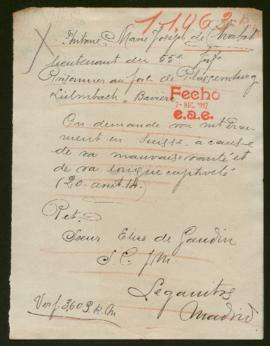 11.463
Antoine Marie Joseph de
lieutenant du 65e Inf.
Prisonnier au fort de Plassenburg
Kulmbach, Bavière
Fecho
7-DIC. 1917
e.a.e.
On demande son interne-
ment en Suisse, à cause
de sa mauvaise santé et
de sa longue captivité
(20 août 14)
Pet.
Soeur Elise de Gaudin
S.C. J.M
Leganitos
Madrid